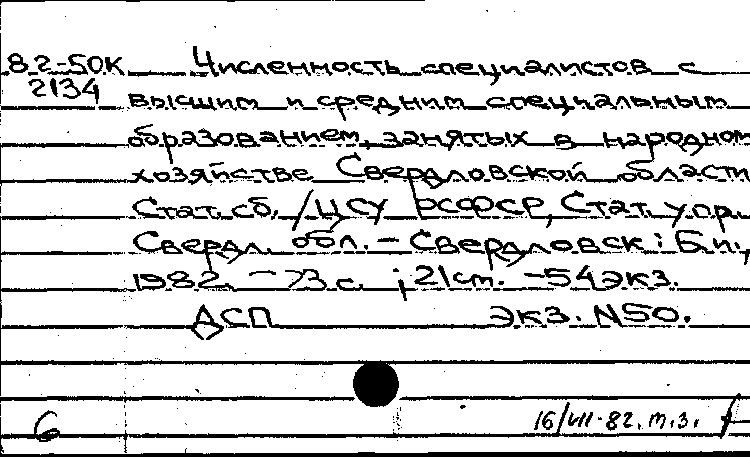 82-50К Численность специалистов с
2134 высшим и средним специальным
образованием, занятых в народном
хозяйстве Свердловской области
Стат. сб. /ЦСУ РСФСР, Стат. упр.
Свердл. обл. - Свердловск: Б.и.,
1982. - 73 с. ; 21 см. - 54 экз.
ДСП Экз. N50.
6 16/VII-82. т.з.